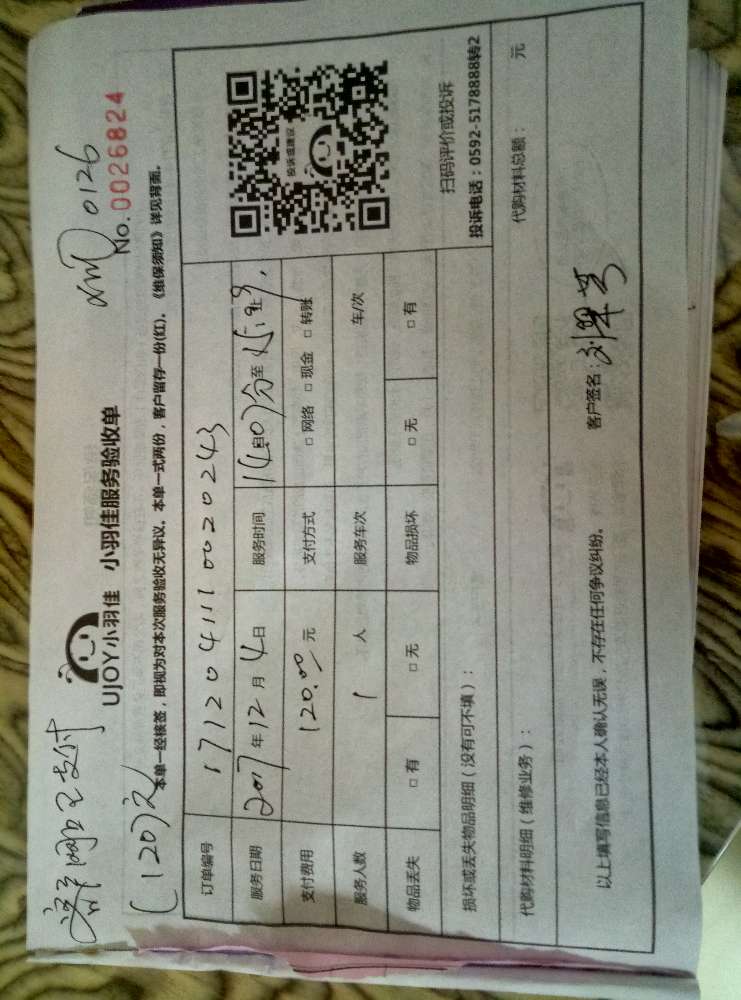 已支付
(120元)
0126
UJOY小羽佳 小羽佳服务验收单
No.0026824
本单一经核签，即视为对本次服务验收无异议。本单一式两份，客户留存一份(红)。《维保须知》详见背面。
订单编号 17120411100020243
服务日期 2017年12月4日 服务时间 自 07分至 止
支付费用 120.00元 支付方式 □ 网络 □ 现金 □ 转账
服务人数 1 人 服务车次 车/次
物品丢失 □ 有 □ 无 物品损坏 □ 无 □ 有
投诉或建议
扫码评价或投诉
投诉电话：0592-5178888转2
损坏或丢失物品明细（没有可不填）：
代购材料明细（维修业务）： 代购材料总额： 元
以上填写信息已经本人确认无误，不存在任何争议纠纷。 客户签名：刘翠芳